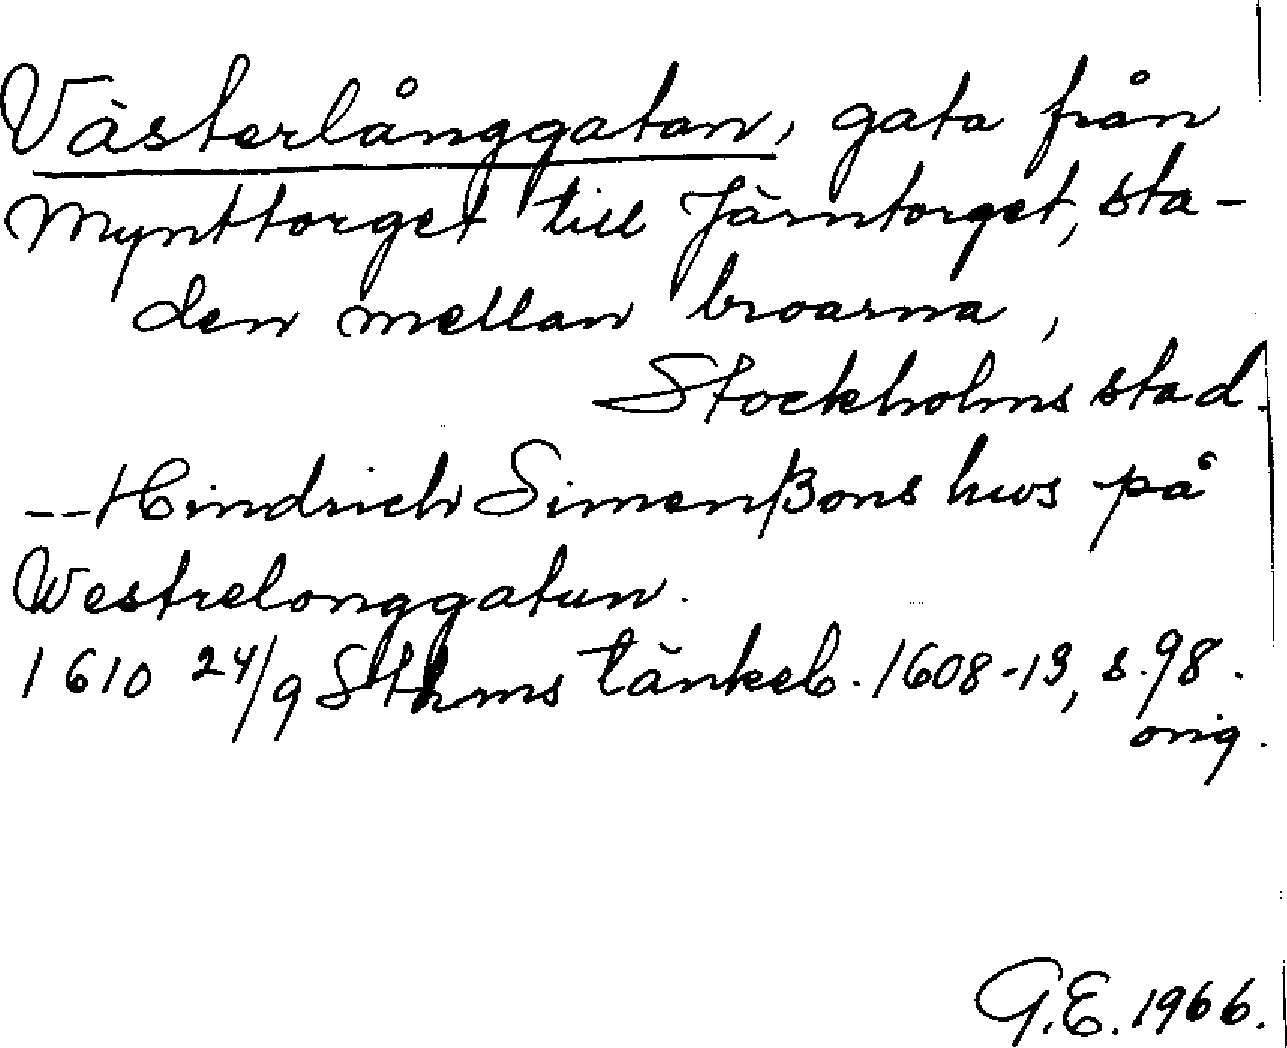 Västerlånggatan, gata från
Mynttorget till Järntorget, sta-
den mellan broarna,
Stockholms stad.
-- Hindrich Simenßons hws på
Westrelonggatun.
1610 24/9 Sthms tänkeb. 1608-13, s. 98.
orig.
G.E. 1966.